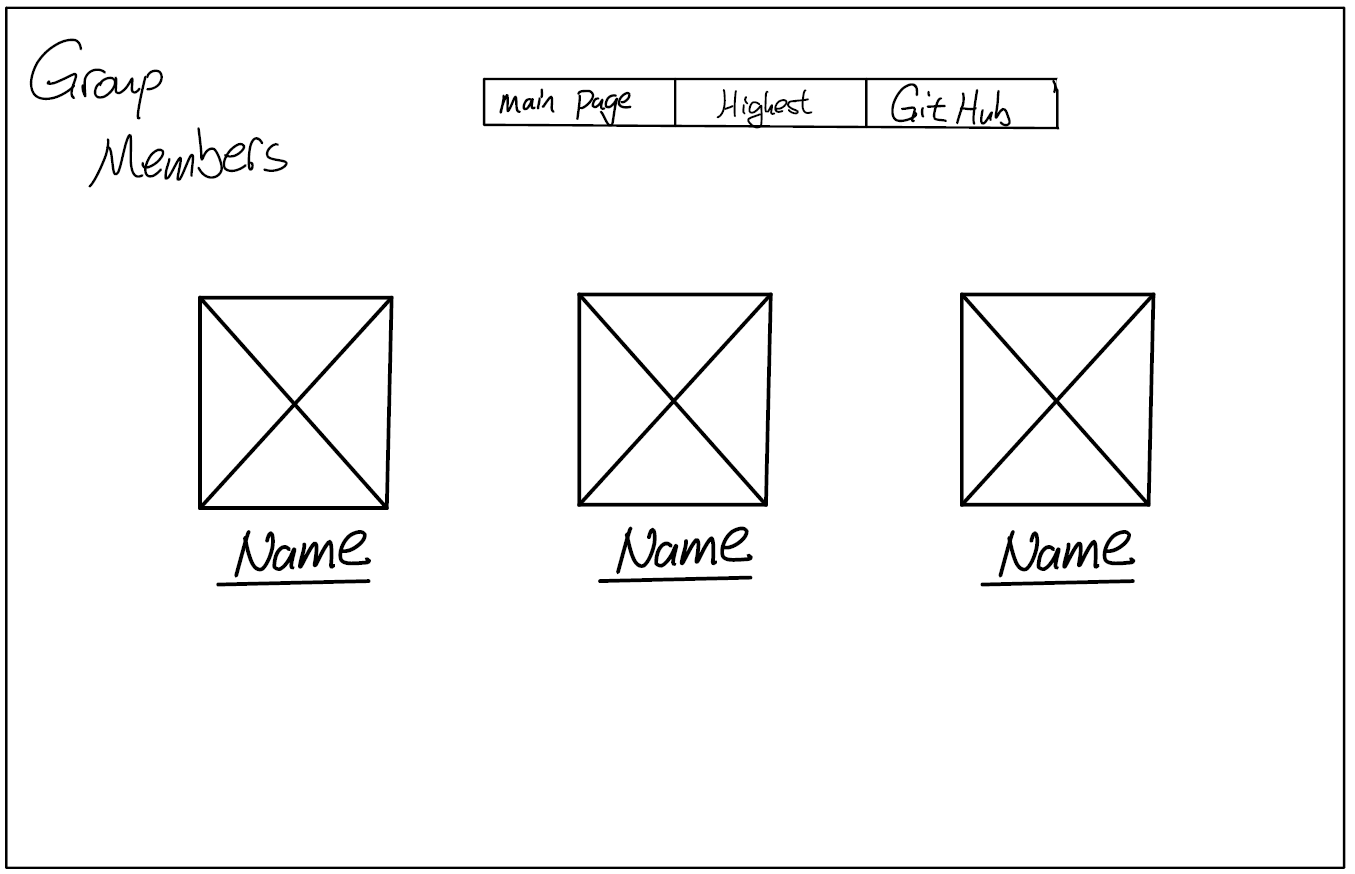 Group
Members
main page
Highest
GitHub
Name
Name
Name